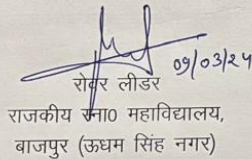 09/03/24
रोवर लीडर
राजकीय स्ना0 महाविद्यालय,
बाजपुर (ऊधम सिंह नगर)